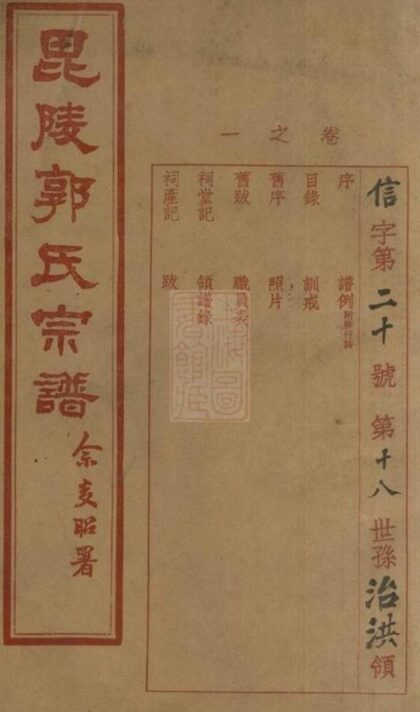 信字第二十號第十八世孫治洪領
卷之一
序 譜例
目錄 訓戒
舊序 照片
舊跋 職員表
祠堂記 領譜錄
祠產記 跋
毘陵郭氏宗譜
上海圖書館藏